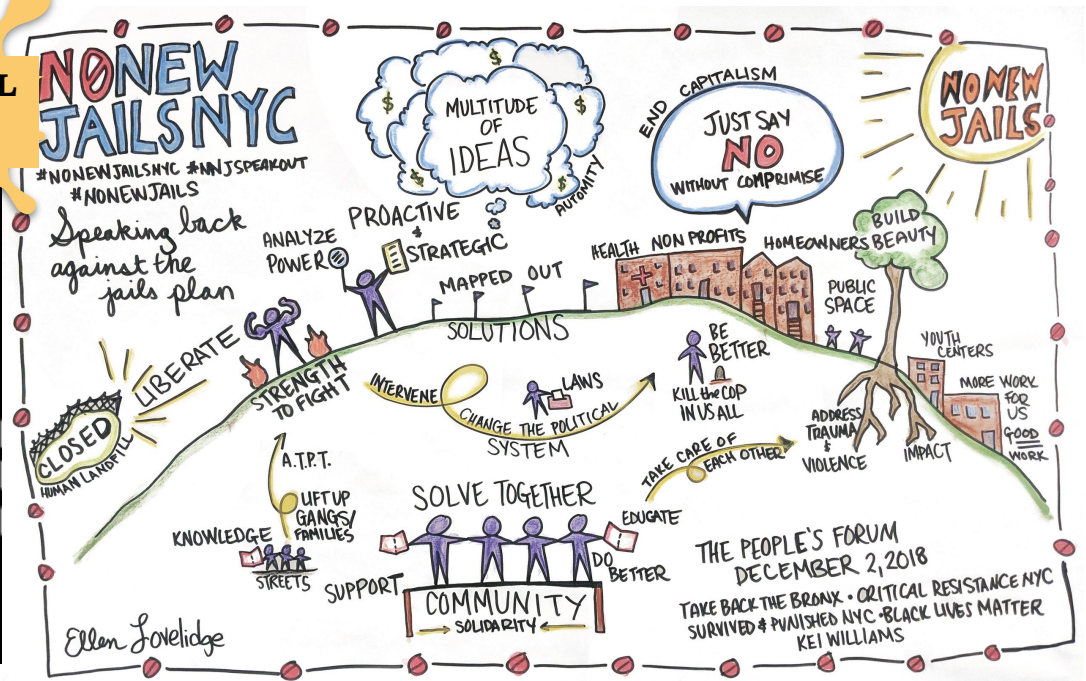 L
NO NEW
JAILS NYC
#NONEWJAILSNYC #NNJSPEAKOUT
#NONEWJAILS
Speaking back
against the
jails plan
MULTITUDE
OF
IDEAS
$
$
$
$
$
AUTOMITY
END CAPITALISM
JUST SAY
NO
WITHOUT COMPRIMISE
NO NEW
JAILS
ANALYZE
POWER
PROACTIVE
&
STRATEGIC
MAPPED OUT
SOLUTIONS
HEALTH
NON PROFITS
HOMEOWNERS
BUILD
BEAUTY
PUBLIC
SPACE
YOUTH
CENTERS
MORE WORK
FOR
US
GOOD
WORK
CLOSED
HUMAN LANDFILL
LIBERATE
STRENGTH
TO FIGHT
INTERVENE
LAWS
CHANGE THE POLITICAL
SYSTEM
BE
BETTER
KILL the COP
IN US ALL
ADDRESS
TRAUMA
&
VIOLENCE
IMPACT
A.T.P.T.
LIFT UP
GANGS/
FAMILIES
KNOWLEDGE
STREETS
SOLVE TOGETHER
TAKE CARE OF
EACH OTHER
EDUCATE
SUPPORT
DO
BETTER
COMMUNITY
SOLIDARITY
THE PEOPLE'S FORUM
DECEMBER 2, 2018
TAKE BACK THE BRONX • CRITICAL RESISTANCE NYC
SURVIVED & PUNISHED NYC • BLACK LIVES MATTER
KEI WILLIAMS
Ellen Lovelidge